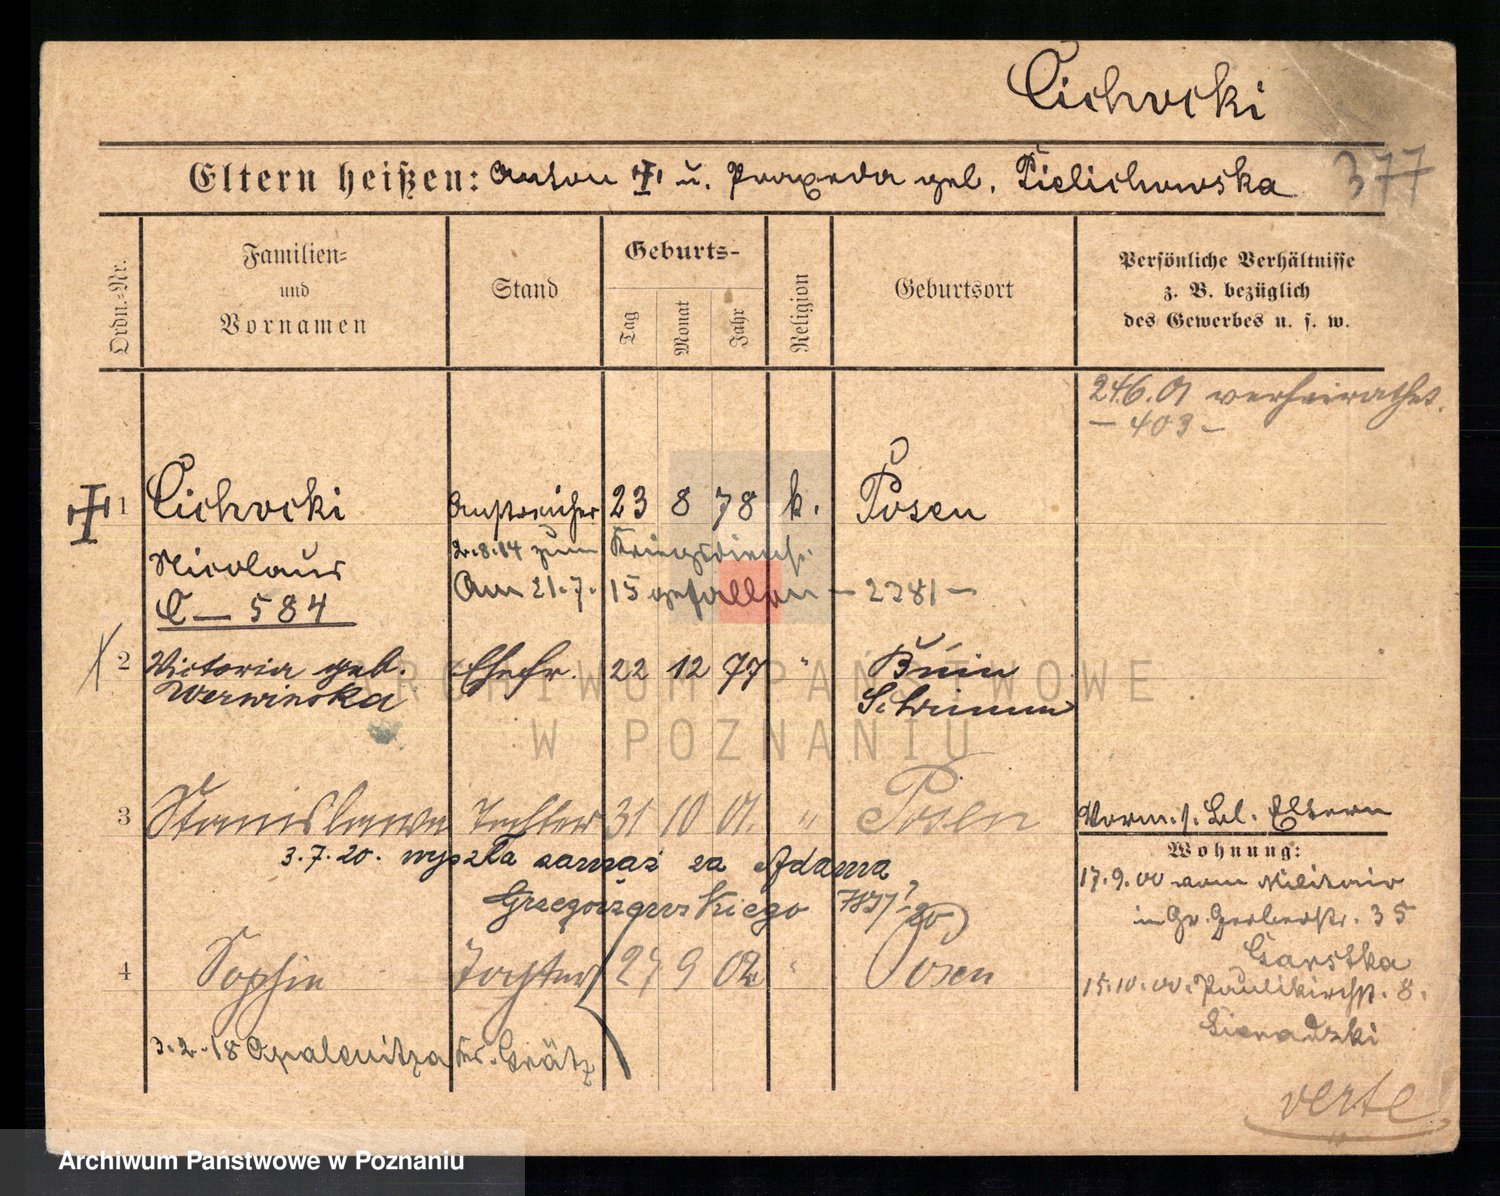 Cichocki
377
Eltern heißen: Anton u. Praxeda geb. Cielichowska
Ordn.-Nr.
Familien-
und
Vornamen
Stand
Geburts-
Tag
Monat
Jahr
Religion
Geburtsort
Persönliche Verhältnisse
z. B. bezüglich
des Gewerbes u. s. w.
24.6.01 verheirathet.
- 403 -
1 Cichocki Anstreicher 23 8 78 k. Posen
Nicolaus 2.8.14 zum Kriegsdienst.
C - 584 Am 21.7.15 gefallen - 2381 -
2 Victoria geb. Ehefr. 22 12 77 " Bnin
Werwinska Schrimm
3 Stanislawa Tochter 31 10 01. " Posen
Vorm. s. Bl. Eltern
3.7.20. wyszła zamąż za Adama
Grzegorzewskiego
Wohnung:
17.9.00 vom Militair
in Gr. Gerberstr. 35
Garstka
4 Sophie Tochter 27 9 02 " Posen
15.10.00. Paulikirchst. 8.
Sieradzki
3.2.18 Opalenitza Kr. Grätz
verte
ARCHIWUM PAŃSTWOWE
W POZNANIU
Archiwum Państwowe w Poznaniu